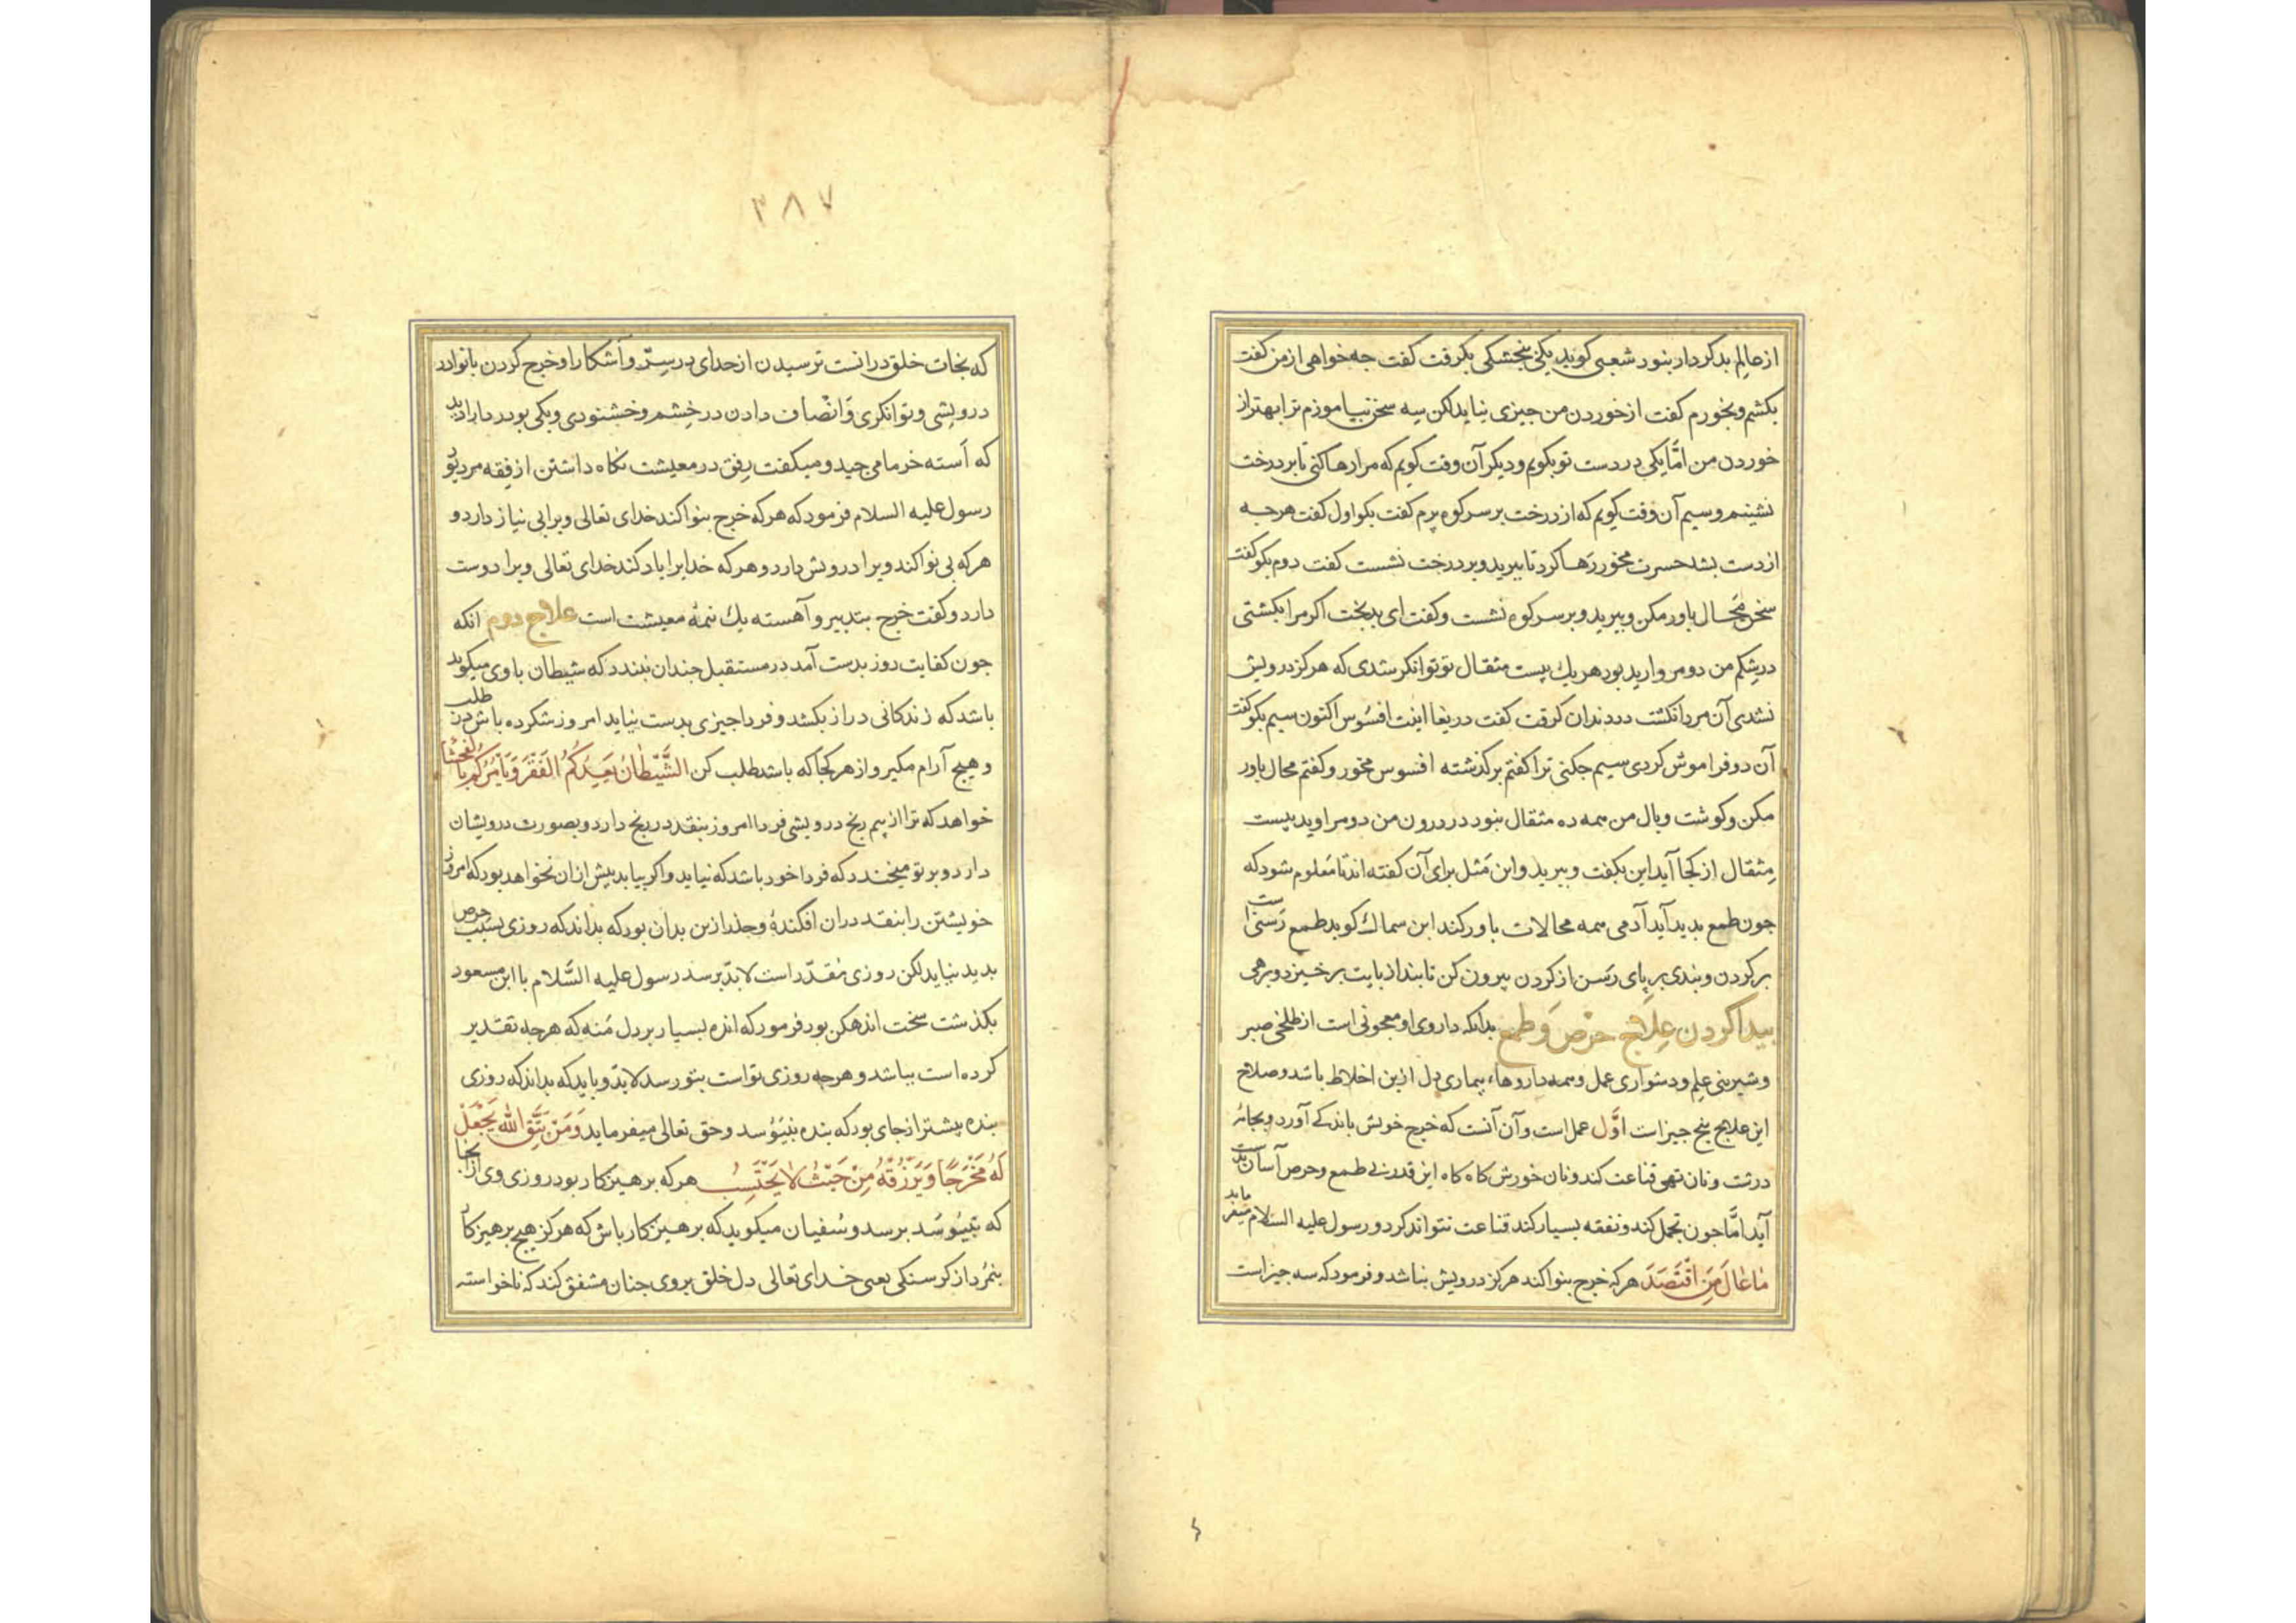 از عالم بدکردار بنود شعبی کوید یکی بنجشکی بکرفت کفت جه خواهی از من کفت
بکشم و بخورم کفت از خوردن من جیزی نیاید لکن سه سخن بیاموزم ترا بهتر از
خوردن من امّا یکی در دست تو بکویم و دیکر آن وقت کویم که مرا رها کنی تا بر درخت
نشینم و سیم آن وقت کویم که از درخت بر سر کوه پرم کفت بکو اول کفت هرجه
از دست بشد حسرت مخور رها کرد تا ببرید و بر درخت نشست کفت دوم بکو کفت
سخن محال باور مکن و ببرید و بر سر کوه نشست و کفت ای بدبخت اکر مرا بکشتی
در شکم من دو مروارید بود هر یك بیست مثقال تو توانکر شدی که هرکز درویش
نشدی آن مرد انکشت در دندان کرفت کفت دریغا اینت افسوس اکنون سیم بکو کفت
آن دو فراموش کردی سیم جکنی ترا کفتم بر کذشته افسوس مخور و کفتم محال باور
مکن و کوشت و بال من همه ده مثقال بنود در درون من دو مراوید بیست
مثقال از کجا آید این بکفت و ببرید و این مَثل برای آن کفته اند تا معلوم شود که
جون طمع بدید آید آدمی همه محالات باور کند ابن سماك کوید طمع رسنی است
بر کردن و بندی بر پای رسن از کردن بیرون کن تا بند از بایت برخیزد و برهی
بیدا کردن علاج حرص و طمع بدانکه داروی او معجونی است از طلخی صبر
و شیرینی علم و دشواری عمل و همه داروهاء بیماری دل ازین اخلاط باشد و صلاح
این علاج بنج جیز است اوّل عمل است و آن آنست که خرج خویش باندکی آورد و بجامهٔ
درشت و نان تهی قناعت کند و نان خورش کاه کاه این قدر بی طمع و حرص آسان بدست
آید امّا جون تجمل کند و نفقه بسیار کند قناعت نتواند کرد و رسول علیه السلام میفرماید
ماعَالَ مَنِ اقْتَصَدَ هر که خرج بنوا کند هرکز درویش بناشد و فرمود که سه جیز است
٣٨٧
که نجات خلق در انست ترسیدن از خدای در سِرّ و آشکارا و خرج کردن بانوا در
درویشی و توانکری و انصاف دادن در خشم و خشنودی و یکی بودردا را دید
که آسته خرما می جید و میکفت رفق در معیشت نکاه داشتن از فقه مرد بود
رسول علیه السلام فرمود که هر که خرج بنوا کند خدای تعالی ویرا بی نیاز دارد و
هر که بی نوا کند ویرا درویش دارد و هر که خدایرا یاد کند خدای تعالی ویرا دوست
دارد و کفت خرج بتدبیر و آهسته یك نیمهٔ معیشت است علاج دوم انکه
جون کفایت روز بدست آمد در مستقبل جندان نبندد که شیطان با وی میکوید
باشد که زندکانی دراز بکشد و فردا جیزی بدست نیاید امروز شکرده باش در طلب
و هیج آرام مکیر و از هر کجا که باشد طلب کن الشَّیْطَانُ یَعِدُکُمُ الفَقْرَ وَیَأمُرُکُم بِالفَحْشَاءِ
خواهد که ترا از بیم رنج درویشی فردا امروز بنقد در رنج دارد و بصورت درویشان
دارد و بر تو میخندد که فردا خود باشد که نیاید و اکر بیاید بیش ازان نخواهد بود که امروز
خویشتن را بنقد دران افکندهٔ و حذر ازین بدان بود که بداند که روزی بسبب حرص
بدید نیاید لکن روزی مقدّر است لابدّ برسد رسول علیه السَّلام با ابن مسعود
بکذشت سخت اندهکن بود فرمود که انده بسیار بر دل منه که هرجه تقدیر
کرده است بباشد و هرجه روزی تو است بتو رسد لابدّ و باید که بداند که روزی
بنده بیشتر از جای بود که بنده نبیوسد و حق تعالی میفرماید وَمَن یَتَّقِ الله یَجْعَلْ
لَهُ مَخْرَجًا وَیَرْزُقْهُ مِنْ حَیْثُ لَا یَحْتَسِبُ هر که برهیزکار بود روزی وی ازانجا
که نبیوسد برسد و سُفیان میکوید که برهیزکار باش که هرکز هیج برهیزکار
بنمُرد از کرسنکی یعی خدای تعالی دل خلق بروی جنان مشفق کند که ناخواسته